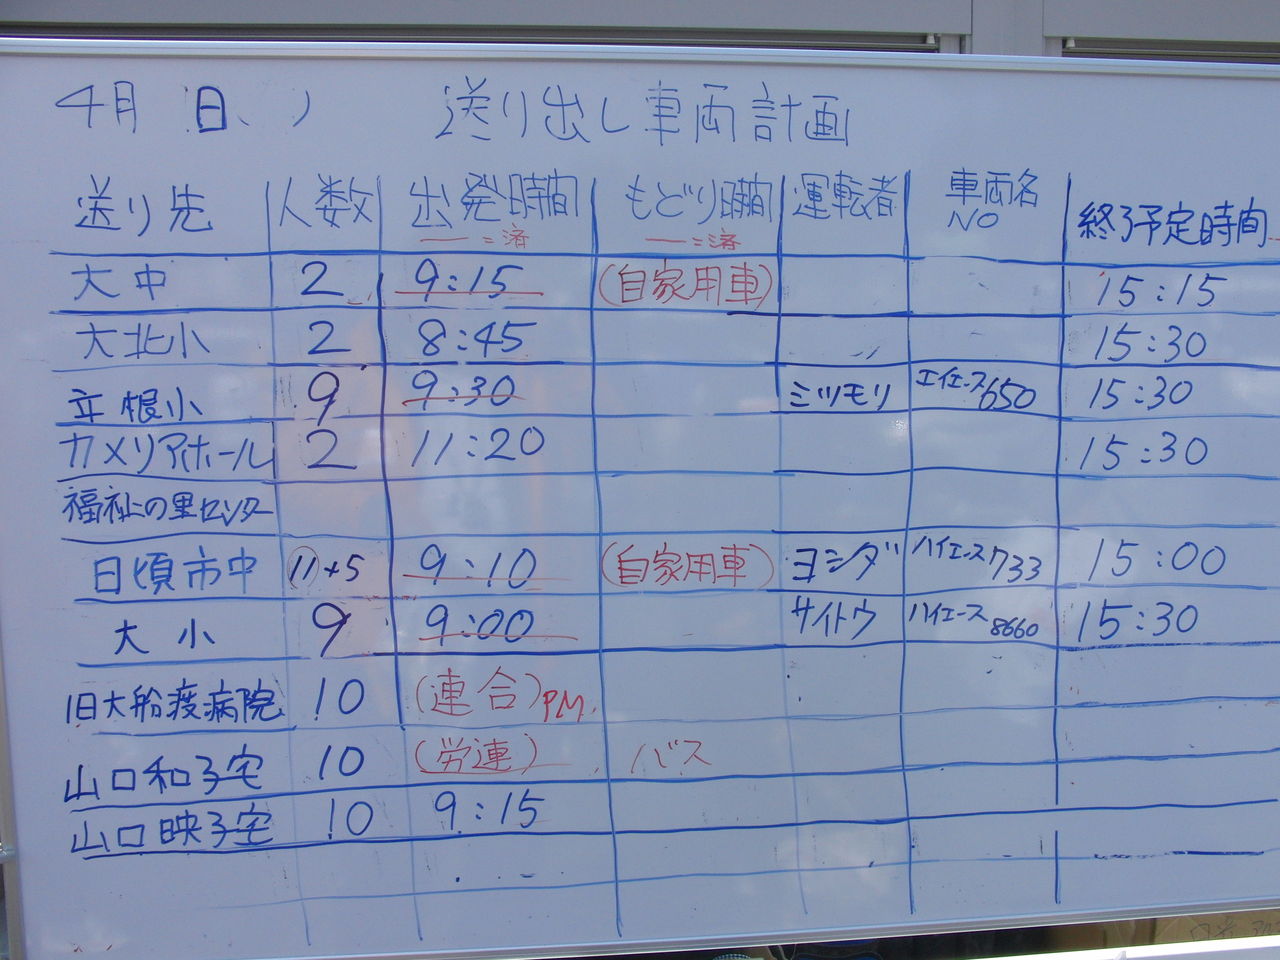 4月 日、 )
送り出し車両計画
送り先 人数 出発時間 もどり時間 運転者 車両名NO 終了予定時間
— =済 — =済
大中 2 9:15 (自家用車) 15:15
大北小 2 8:45 15:30
立根小 9 9:30 ミツモリ エイエース650 15:30
カメリアホール 2 11:20 15:30
福祉の里センター
日頃市中 11+5 9:10 (自家用車) ヨシダ ハイエース733 15:00
大小 9 9:00 サイトウ ハイエース8660 15:30
旧大船渡病院 10 (連合)PM.
山口和子宅 10 (労連) バス
山口映子宅 10 9:15